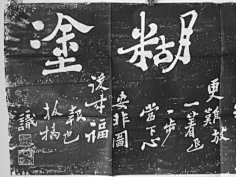 糊塗
更難放
一着退
一步
當下心
安非圖
後来福
報也
板橋
識